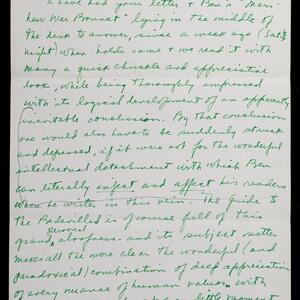 I have had your letter & Ben's "Mari-
huana War Bonnet" lying in the middle of
the desk to answer, since a week ago (Sat.
night) when Holds came & we read it with
many a quick chuckle and appreciative
look, while being thoroughly impressed
with its logical development of an apparently
inevitable conclusion. By that conclusion
one would also have to be suddenly struck
and depressed, if it were not for the wonderful
intellectual detachment with which Ben
can literally infect and affect his readers
when he writes in this vein. The Guide to
the Bedevilled is of course full of this
grand, personal aloofness and its subject matter
makes all the more clear the wonderful (and
paradoxical) combination of deep appreciation
of every nuance of human values with
little